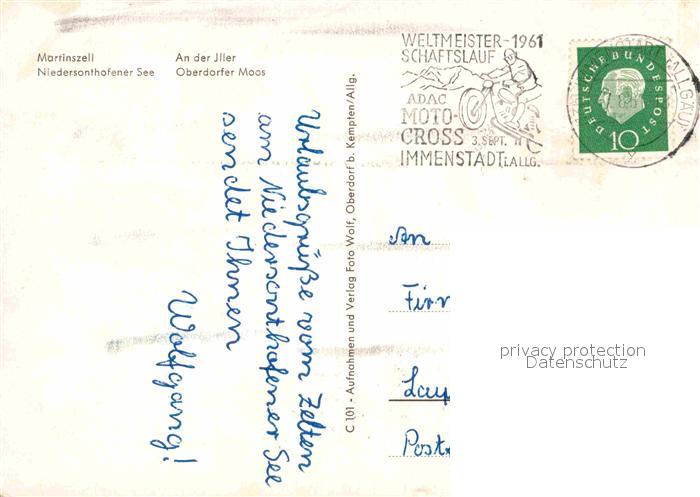 Martinszell
Niedersonthofener See
An der Jller
Oberdorfer Moos
WELTMEISTER-1961
SCHAFTSLAUF
ADAC
MOTO-
CROSS 3. SEPT.
IMMENSTADT i.ALLG.
DEUTSCHE BUNDESPOST
10
Urlaubsgrüße vom Zelten
am Niedersonthofener See
sendet Ihnen
Wolfgang!
C 101 - Aufnahmen und Verlag Foto Wolf, Oberdorf b. Kempten/Allg.
An
privacy protection
Datenschutz